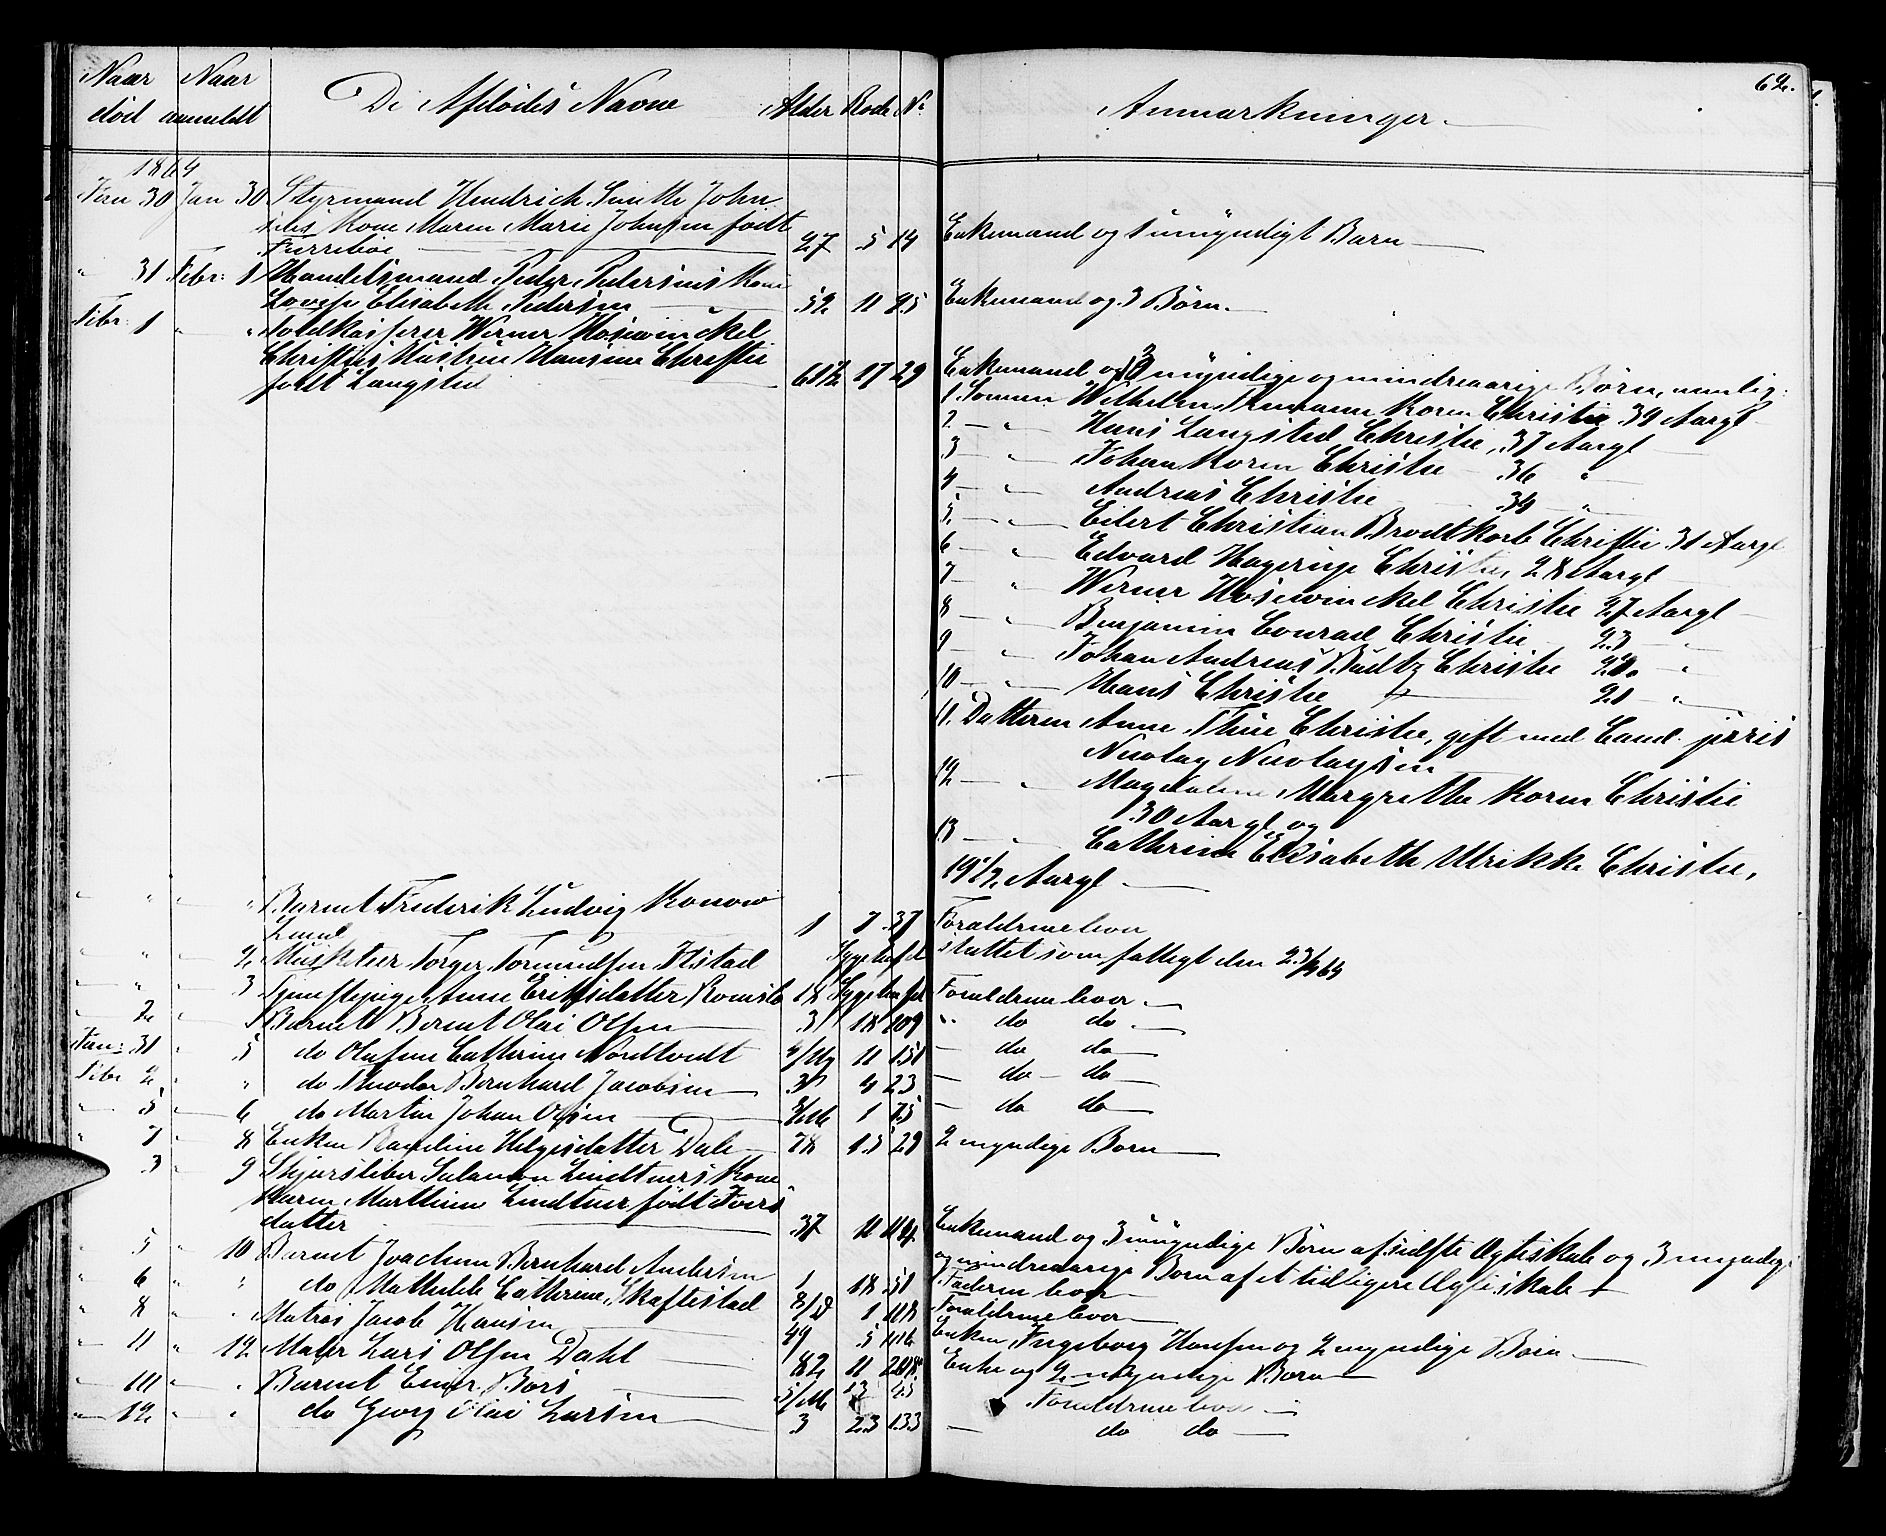 62.
Naar død
Naar anmeldt
De Afdødes Navne
Alder Rode No
Anmærkninger.
1864
Jan 30 Jan 30 Styrmand Hendrich Smith John
sens Kone Maren Marie Johnsen født
27 5 14 Enkemand og 1 umyndigt Barn
" 31 Febr: 1 Handelsmand Peder Pedersens Kone
Lovise Elisabeth Pedersen 52 11 25 Enkemand og 3 Børn.
Febr: 1 " " Toldkasserer Werner Hosewinckel
Christies Hustrue Hansine Christie
født Langsted 61½ 17 29 Enkemand og 13 myndige og mindreaarige Børn, nemlig:
1 Sønnen Wilhelm Koren Christie 39 Aargl
2 — " Hans Langsted Christie, 37 Aargl
3 — " Johan Koren Christie 36 "
4 — " Andreas Christie 34 "
5 — " Eilert Christian Brodtkorb Christie 31 Aargl
6 — " Edvard Hagerup Christie, 28 Aargl
7 — " Werner Hosewinckel Christie 27 Aargl
8 — " Benjamin Conrad Christie 23 "
9 — " Johan Andreas Budtz Christie 20 "
10 — " Hans Christie 21 "
11. Datteren Anne Thue Christie, gift med Cand. juris
Nicolay Nicolaysen
12 — " Magdalene Margrethe Koren Christie
30 Aargl og
13 — " Cathrine Elisabeth Ulrikke Christie,
19½ Aargl
" " " " Barnet Frederik Ludvig Konow
Lund 1 7 37 Forældrene lever
" " " 2 Musketeer Torger Tormodsen Sygehuset sluttet som fattigt den 23/ 64
" " " 3 Tjenestepige Anne Eriksdatter 18 Sygehuset Forældrene lever
" 2 " " Barnet Bernt Olai Olsen 3 18 109 " do do
Jan: 31 " 5 do Olufine Cathrine Nordtvedt 4/Ug 11 151 — do do
Febr 2 " " do Theodor Bernhard Jacobsen 3 4 23 — do do
" 5 " 6 do Martin Johan Olsen 1 75 — do do
" 7 " 8 Enken Helgesdatter Dale 78 15 29 2 myndige Børn
" 3 " 9 Skjærsliber Salamon Lindtners Kone
Karen Marthine Lindtner født Ivers
datter 37 11 Enkemand og 3 umyndige Børn af sidste Ægteskab og 3 myndige
og mindreaarige Børn af et tidligere Ægteskab
" 5 " 10 Barnet Joachim Bernhard Andersen 1 18 51 Faderen lever
" 6 " " do Mathilde Cathrine Skaftestad 8/D 1 118 Forældrene lever
" 8 " " Matros Jacob Hansen 49 5 Enken Ingeborg Hansen og 2 myndige Børn
" 11 " 12 Maler Lars Olsen Dahl 82 11 Enke og 2 myndige Børn
" " " Barnet Einer Børs 5/M 12 45 Forældrene lever
" 12 " " do Georg Olai Larsen 3 23 133 — do do